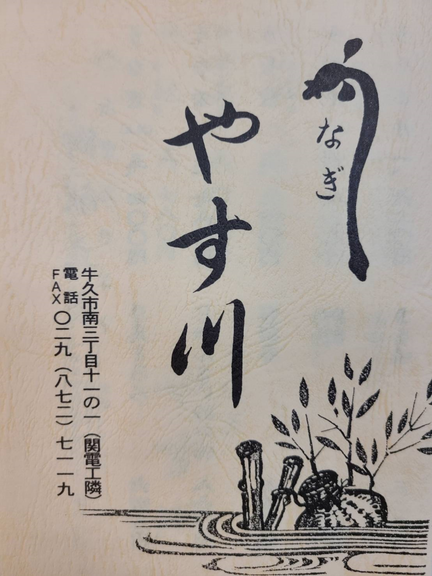 うなぎ
やす川
牛久市南三丁目十一の一（関電工隣）
電話
FAX
〇二九（八七二）七一一九